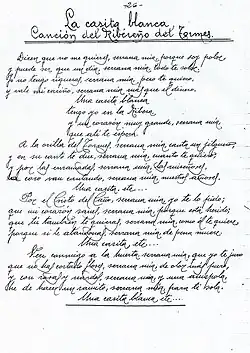 -26-
La casita blanca
Canción del Ribereño del Tormes.
Dicen que no me quieres, serrana mía, porque soy pobre
y puede ser, que un día, serrana mía, todo te sobre
yo no tengo riquezas, serrana mía, pero te quiero,
y vale mi cariño, serrana mía, más que el dinero.
Una casita blanca
tengo yo en la Ribera
y un corazón muy grande, serrana mía,
que allí te espera
A la orilla del Tormes, serrana mía, canta un jilguero,
y en su canto te dice, serrana mía, cuanto te quiero;
y por las enramadas, serrana mía, los ruiseñores,
a coro van cantando, serrana mía, nuestros amores.
Una casita, etc...
Por el Cristo del serrana mía, yo te lo pido;
que mi corazón sanes, serrana mía, porque está herido;
que tu también le quieras, serrana mía, como él te quiere,
porque si le abandonas, serrana mía, de pena muere
Una casita, etc...
Vente conmigo a la huerta, serrana mía, que yo te juro
que he cortado flores, serrana mía, de olor más puro,
y con rosas y nardos, serrana mía, y una amapola,
he de hacer un ramito, serrana mía, para ti sola.
Una casita blanca, etc...